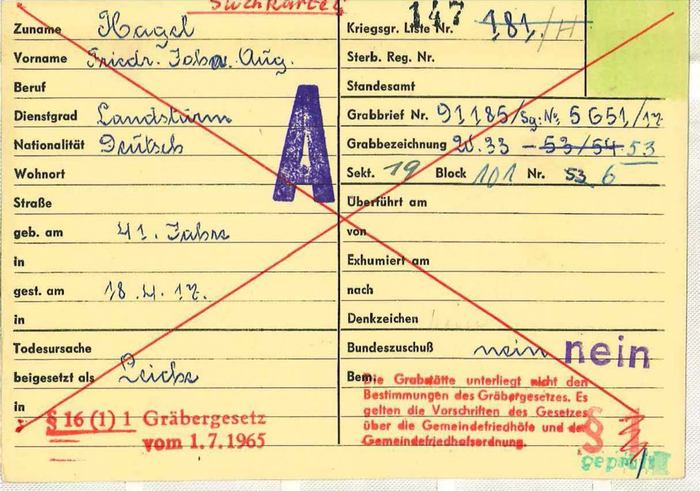 Suchkartei
147
Zuname Hagel
Kriegsgr. Liste Nr. 181/H
Vorname Friedr. Johan Aug.
Sterb. Reg. Nr.
Beruf
Standesamt
Dienstgrad Landsturm
Grabbrief Nr. 91185/Sg: No 5651/17
Nationalität Deutsch
Grabbezeichnung W. 33 – 53/54 53
Wohnort
Sekt. 19 Block 101 Nr. 53 6
A
Straße
Überführt am
geb. am 41. Jahre
von
in
Exhumiert am
gest. am 18.4.17.
nach
in
Denkzeichen
Todesursache
Bundeszuschuß nein nein
beigesetzt als Leiche
Bem.
in
§ 16 (1) 1 Gräbergesetz
vom 1.7.1965
Die Grabstätte unterliegt nicht den
Bestimmungen des Gräbergesetzes. Es
gelten die Vorschriften des Gesetzes
über die Gemeindefriedhöfe und der
Gemeindefriedhofsordnung.
§ 1
geprüft